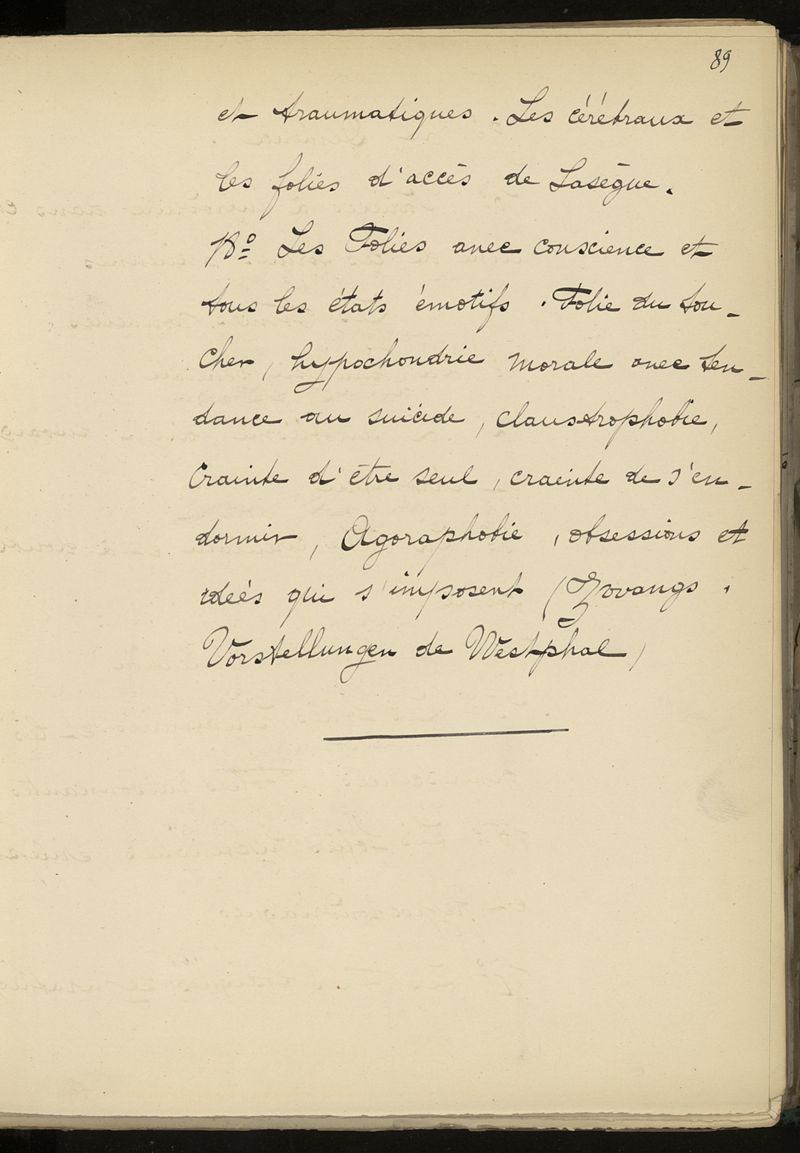 89
et traumatiques. Les cérébraux et
les foliés d'accès de Lasègue.
Les Foliés avec conscience et
tous les états émotifs. Folie du tou-
cher, hypochondrie morale avec ten-
dance au suicide, claustrophobie,
Crainte d'être seul, crainte de s'en-
dormir, Agoraphobie, obsessions et
ideés qui s'imposent (Zwangs.
Vorstellungen de Westphal)